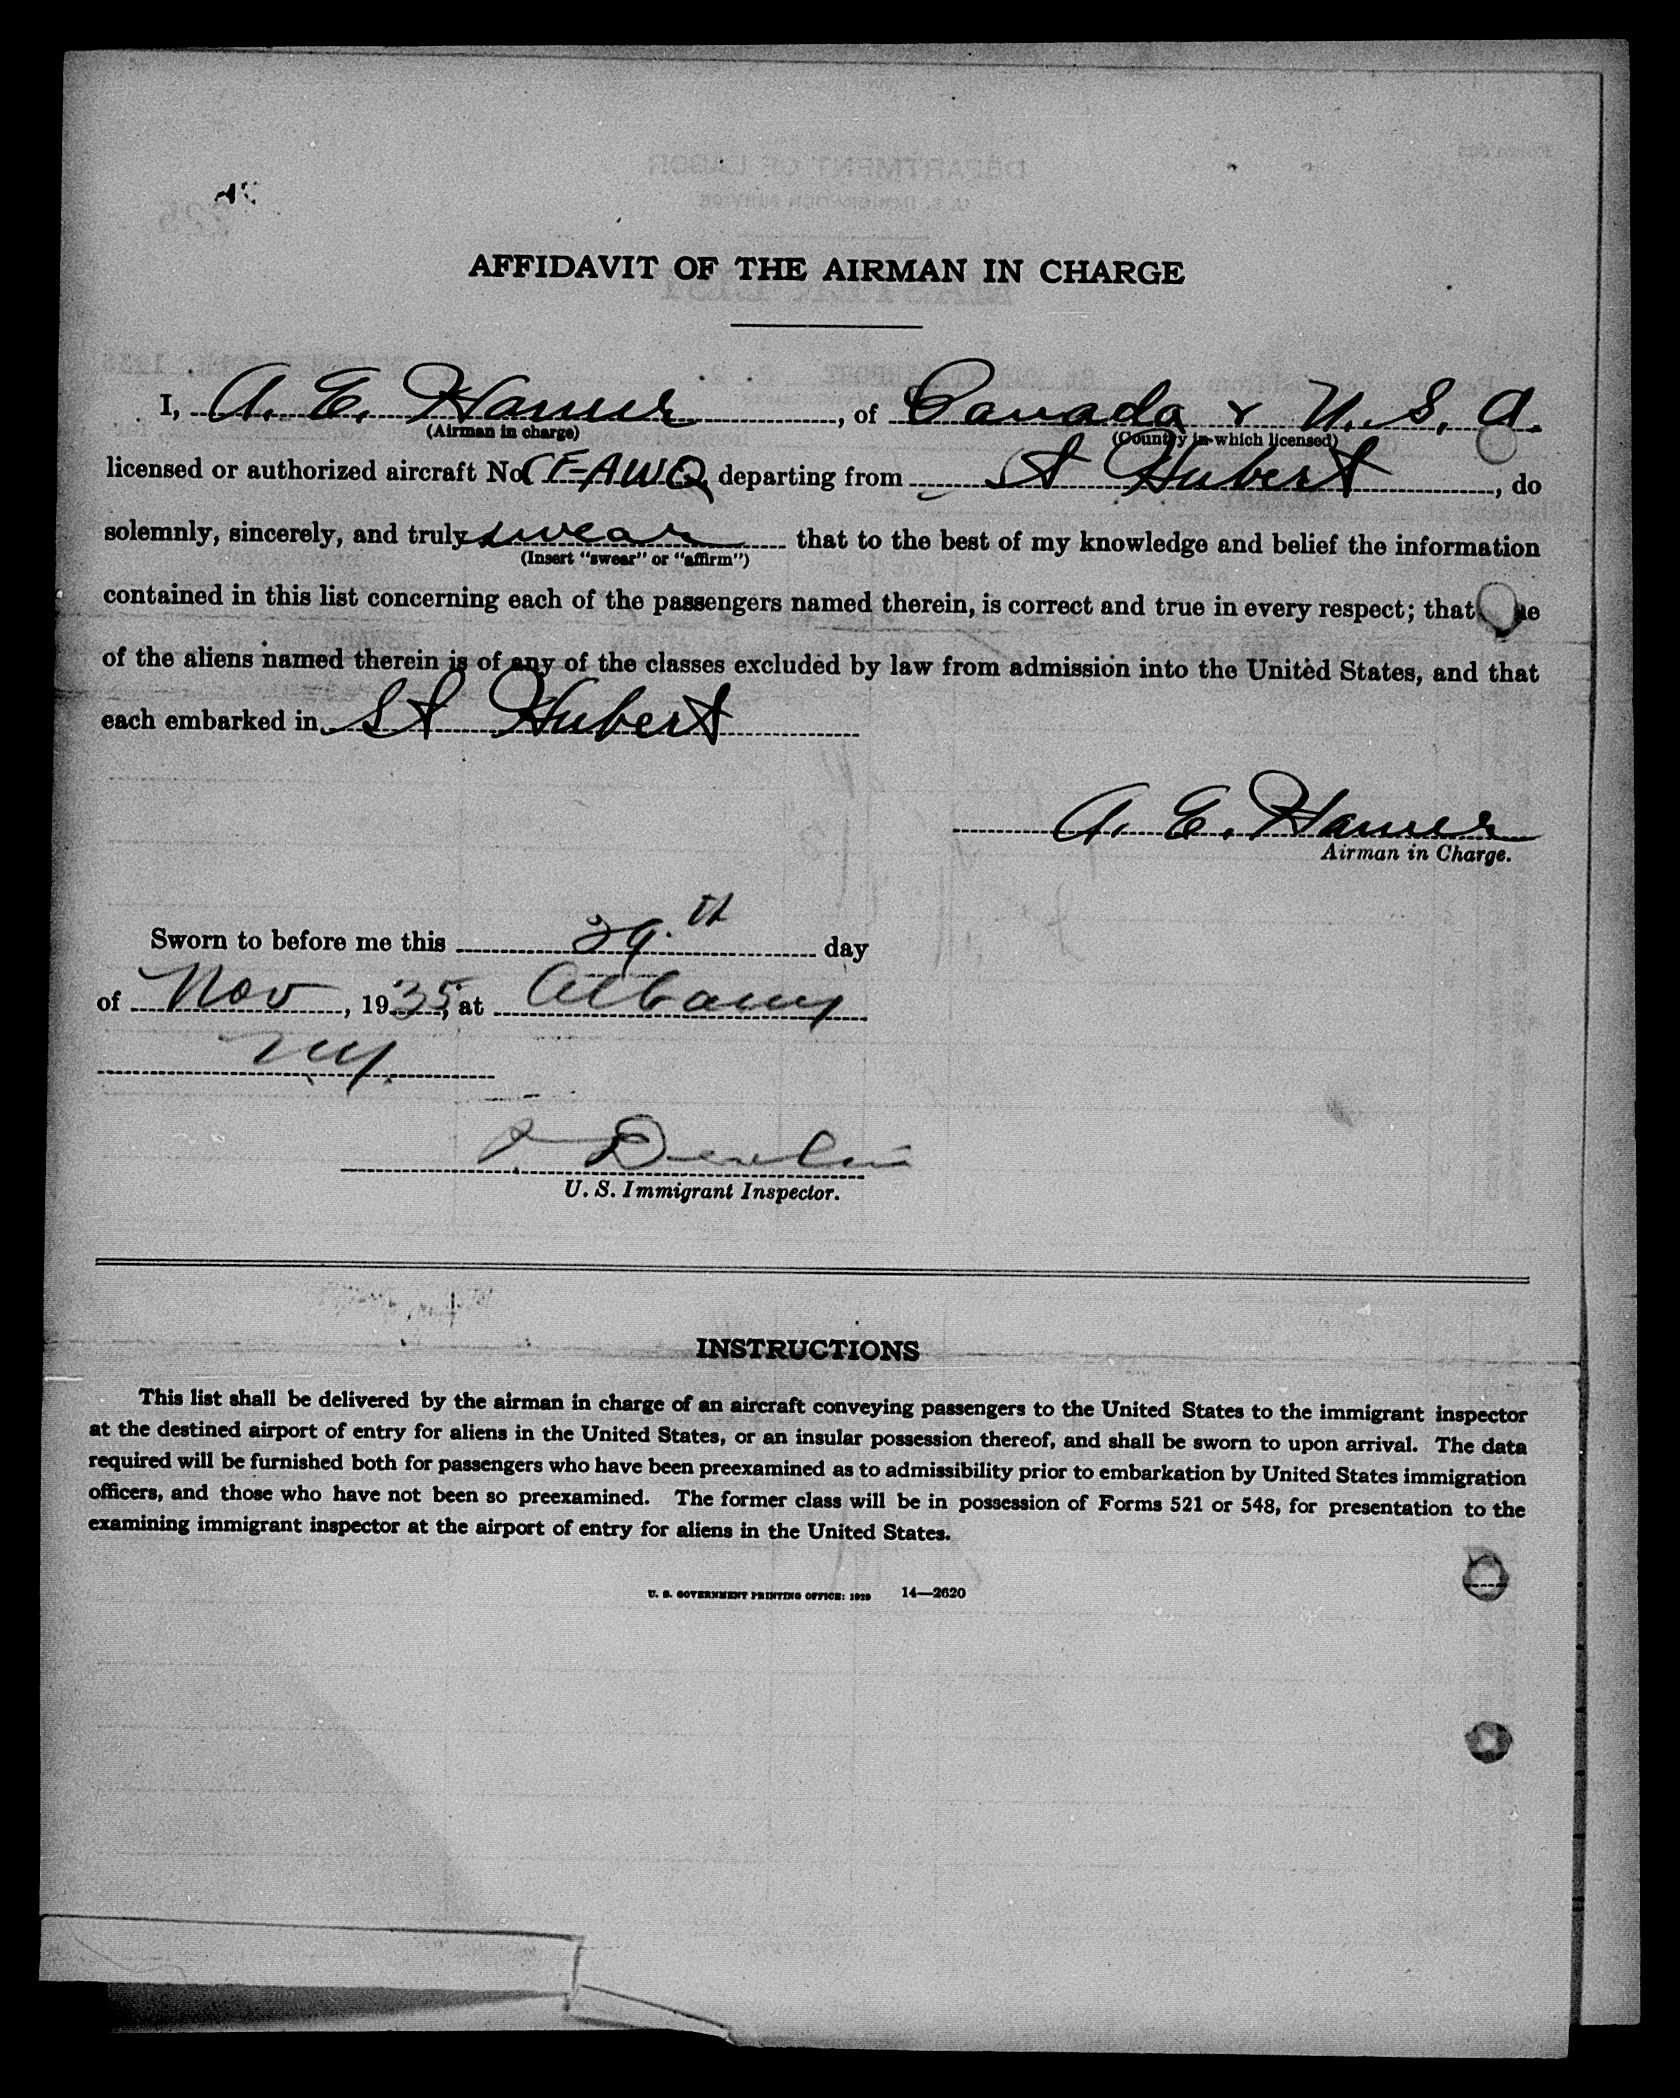 AFFIDAVIT OF THE AIRMAN IN CHARGE
I, A. E. Hamer, of Canada & U. S. A.
(Airman in charge) (Country in which licensed)
licensed or authorized aircraft No. CF-AWQ departing from St Hubert, do
solemnly, sincerely, and truly swear that to the best of my knowledge and belief the information
(Insert "swear" or "affirm")
contained in this list concerning each of the passengers named therein, is correct and true in every respect; that
of the aliens named therein is of any of the classes excluded by law from admission into the United States, and that
each embarked in St Hubert
A. E. Hamer
Airman in Charge.
Sworn to before me this 29.th day
of Nov, 1935, at Albany
NY.
Devlin
U. S. Immigrant Inspector.
INSTRUCTIONS
This list shall be delivered by the airman in charge of an aircraft conveying passengers to the United States to the immigrant inspector
at the destined airport of entry for aliens in the United States, or an insular possession thereof, and shall be sworn to upon arrival. The data
required will be furnished both for passengers who have been preexamined as to admissibility prior to embarkation by United States immigration
officers, and those who have not been so preexamined. The former class will be in possession of Forms 521 or 548, for presentation to the
examining immigrant inspector at the airport of entry for aliens in the United States.
U. S. GOVERNMENT PRINTING OFFICE: 1929 14—2620